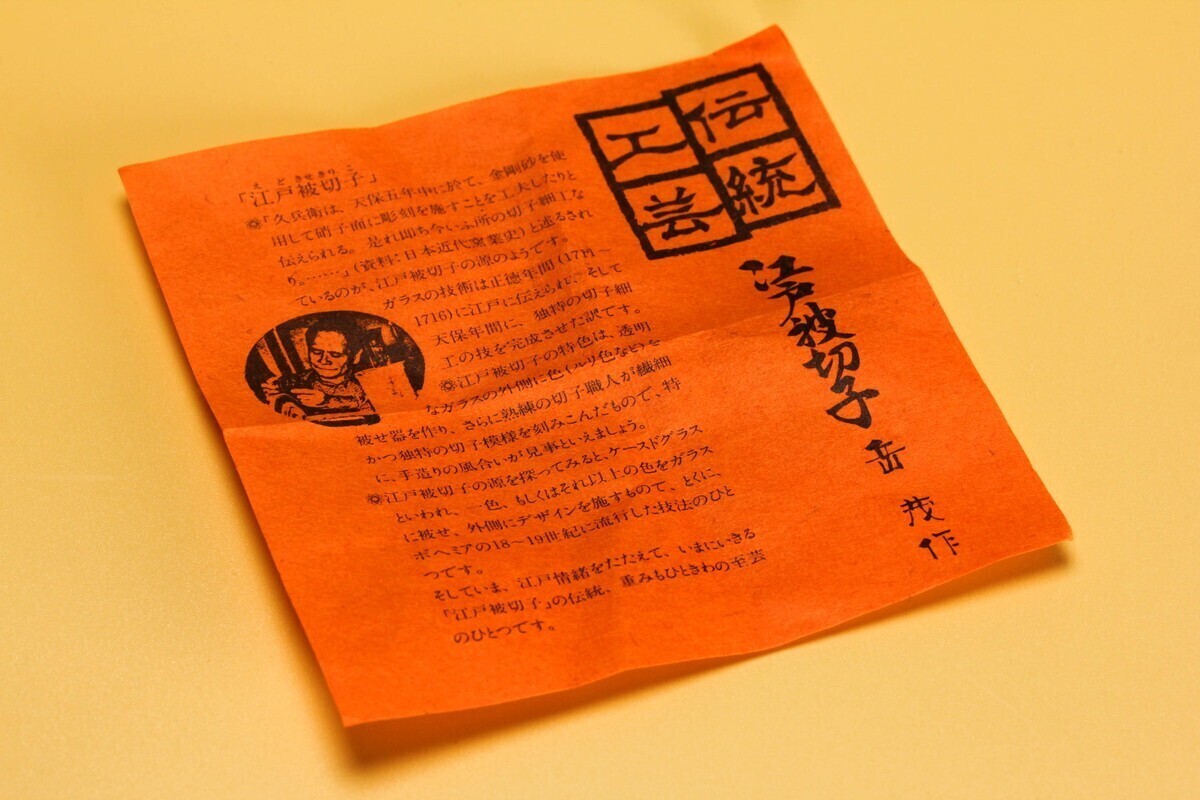 伝統
工芸
江戸被切子
岳 茂作
えどきせきりこ
「江戸被切子」
◎「久兵衛は、天保五年中に於て、金剛砂を使
用して硝子面に彫刻を施すことを工夫したりと
伝えられる。是れ即ち今いふ所の切子細工な
り。……」(資料:日本近代窯業史)と述るされ
ているのが、江戸被切子の源のようです。
ガラスの技術は正徳年間(1711~
1716)に江戸に伝えられ、そして
天保年間に、独特の切子細
工の技を完成させた訳です。
◎江戸被切子の特色は、透明
なガラスの外側に色(ルリ色など)を
被せ器を作り、さらに熟練の切子職人が繊細
かつ独特の切子模様を刻みこんだもので、特
に、手造りの風合いが見事といえましょう。
◎江戸被切子の源を探ってみると、ケースドグラス
といわれ、一色、もしくはそれ以上の色をガラス
に被せ、外側にデザインを施すもので、とくに、
ボヘミアの18~19世紀に流行した技法のひと
つです。
そしていま、江戸情緒をたたえて、いまにいきる
「江戸被切子」の伝統、重みもひときわの至芸
のひとつです。